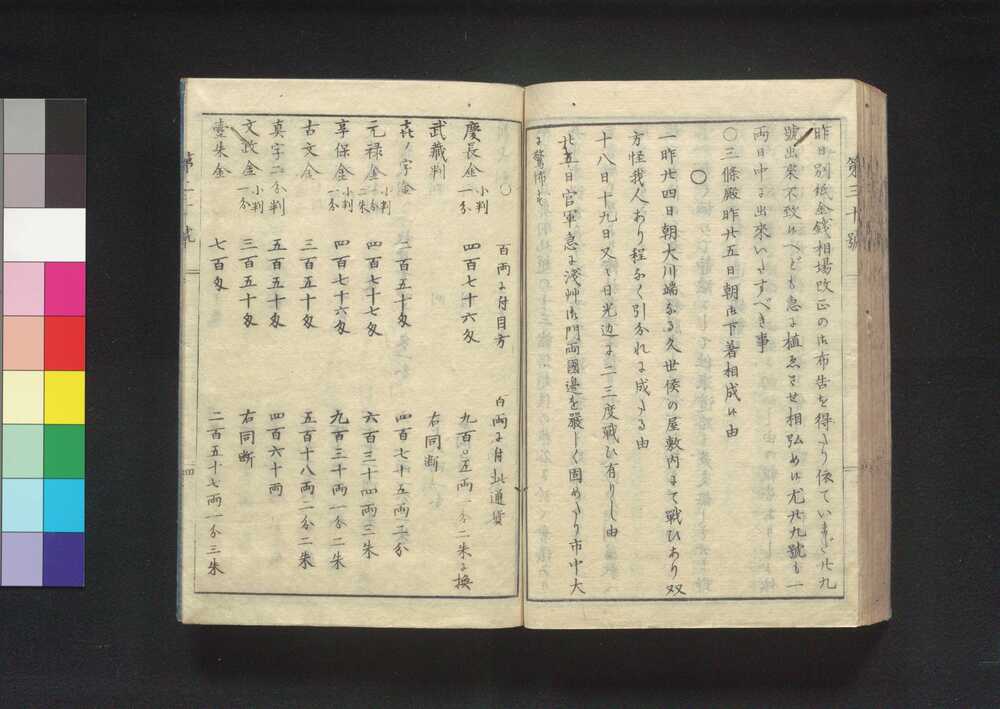 第三十號
昨日別紙金錢相場改正の御布告を得たり依ていまだ廿九
號出来不致候へども急に植ゑさせ相弘め候尤廿九號も一
両日中に出来いたすべき事
〇三條殿昨廿五日朝御下著相成候由
〇
一昨廿四日朝大川端なる久世侯の屋敷内にて戦ひあり双
方怪我人あり程なく引分れに成たる由
十八日十九日又々日光辺に二三度戦ひ有りし由
廿五日官軍急に浅艸御門両國邊を嚴しく固めたり市中大
に驚怖す
〇 百両に付目方 百両に付此通貨
慶長金 小判 一分 四百七十六匁 九百〇五両一分二朱に換
武藏判 右同断
乾ノ字金 二百五十匁 四百七十五両二分
元禄金 小判 一分 二朱 四百七十七匁 六百三十四両三朱
享保金 小判 一分 四百七十六匁 九百三十両一分二朱
古文金 三百五十匁 五百十八両二分二朱
真字二分判 五百五十匁 四百六十両
文政金 小判 一分 三百五十匁 右同断
壹朱金 七百匁 二百五十七両一分三朱